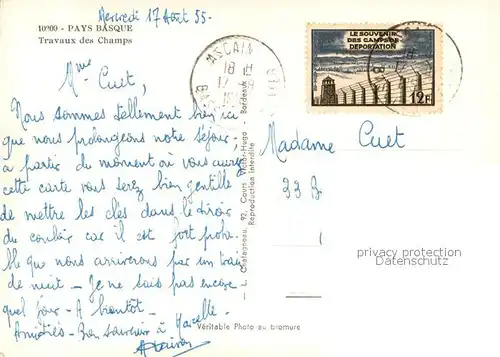 Mercredi 17 Août 55-
10°00 - PAYS BASQUE
Travaux des Champs
Mme Cuet,
Nous sommes tellement bien ici
que nous prolongeons notre séjour,
à partir du moment où vous aurez
cette carte vous serez bien gentille
de mettre les clés dans le tiroir
du couloir car il est fort proba-
ble que nous arriverons par un train
de nuit - Je ne sais pas encore
quel jour - A bientôt -
Amitiés - Bon souvenir à Marcelle -
ASCAIN
18 H
LE SOUVENIR
DES CAMPS DE
DEPORTATION
12F
Madame Cuet
33 B
Chatagneau, 92, Cours Victor-Hugo - Bordeaux
Reproduction interdite
Véritable Photo au bromure
privacy protection
Datenschutz